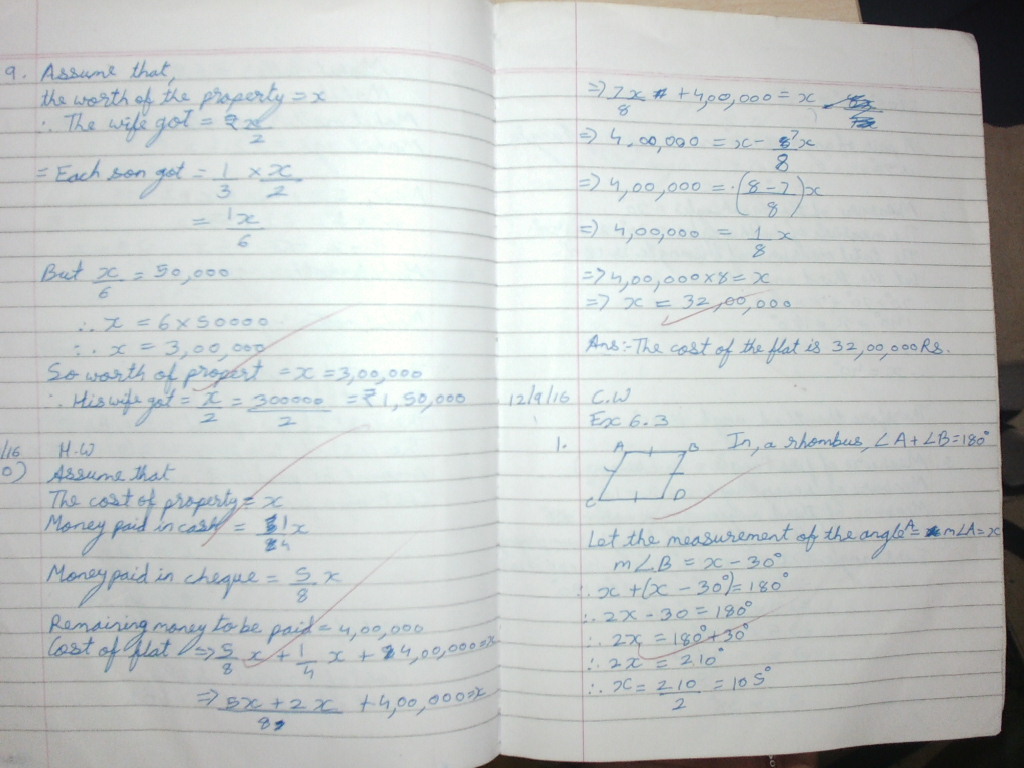 9. Assume that,
the worth of the property = x
∴ The wife got = ₹x/2
= Each son got = 1/3 × x/2
= 1x/6
But x/6 = 50,000
∴ x = 6×50000
∴ x = 3,00,000
So worth of propert = x = 3,00,000
∴ His wife got = x/2 = 300000/2 = ₹1,50,000
/16 H.W
0) Assume that
The cost of property = x
Money paid in cash = 1/4 x
Money paid in cheque = 5/8 x
Remaining money to be paid = 4,00,000
Cost of flat => 5/8 x + 1/4 x + 4,00,000=x
=> 5x+2x/8 + 4,00,000=x
=> 7x/8 + 4,00,000 = x
=> 4,00,000 = x - 7x/8
=> 4,00,000 = (8-7/8)x
=> 4,00,000 = 1/8 x
=> 4,00,000×8 = x
=> x = 32,00,000
Ans:- The cost of the flat is 32,00,000Rs.
12/9/16 C.W
Ex 6.3
1. A B In, a rhombus, ∠A+∠B=180°
C D
Let the measurement of the angle A = m∠A=x
m∠B = x-30°
∴ x+(x-30°)=180°
∴ 2x-30=180°
∴ 2x=180°+30°
∴ 2x = 210°
∴ x = 210/2 = 105°